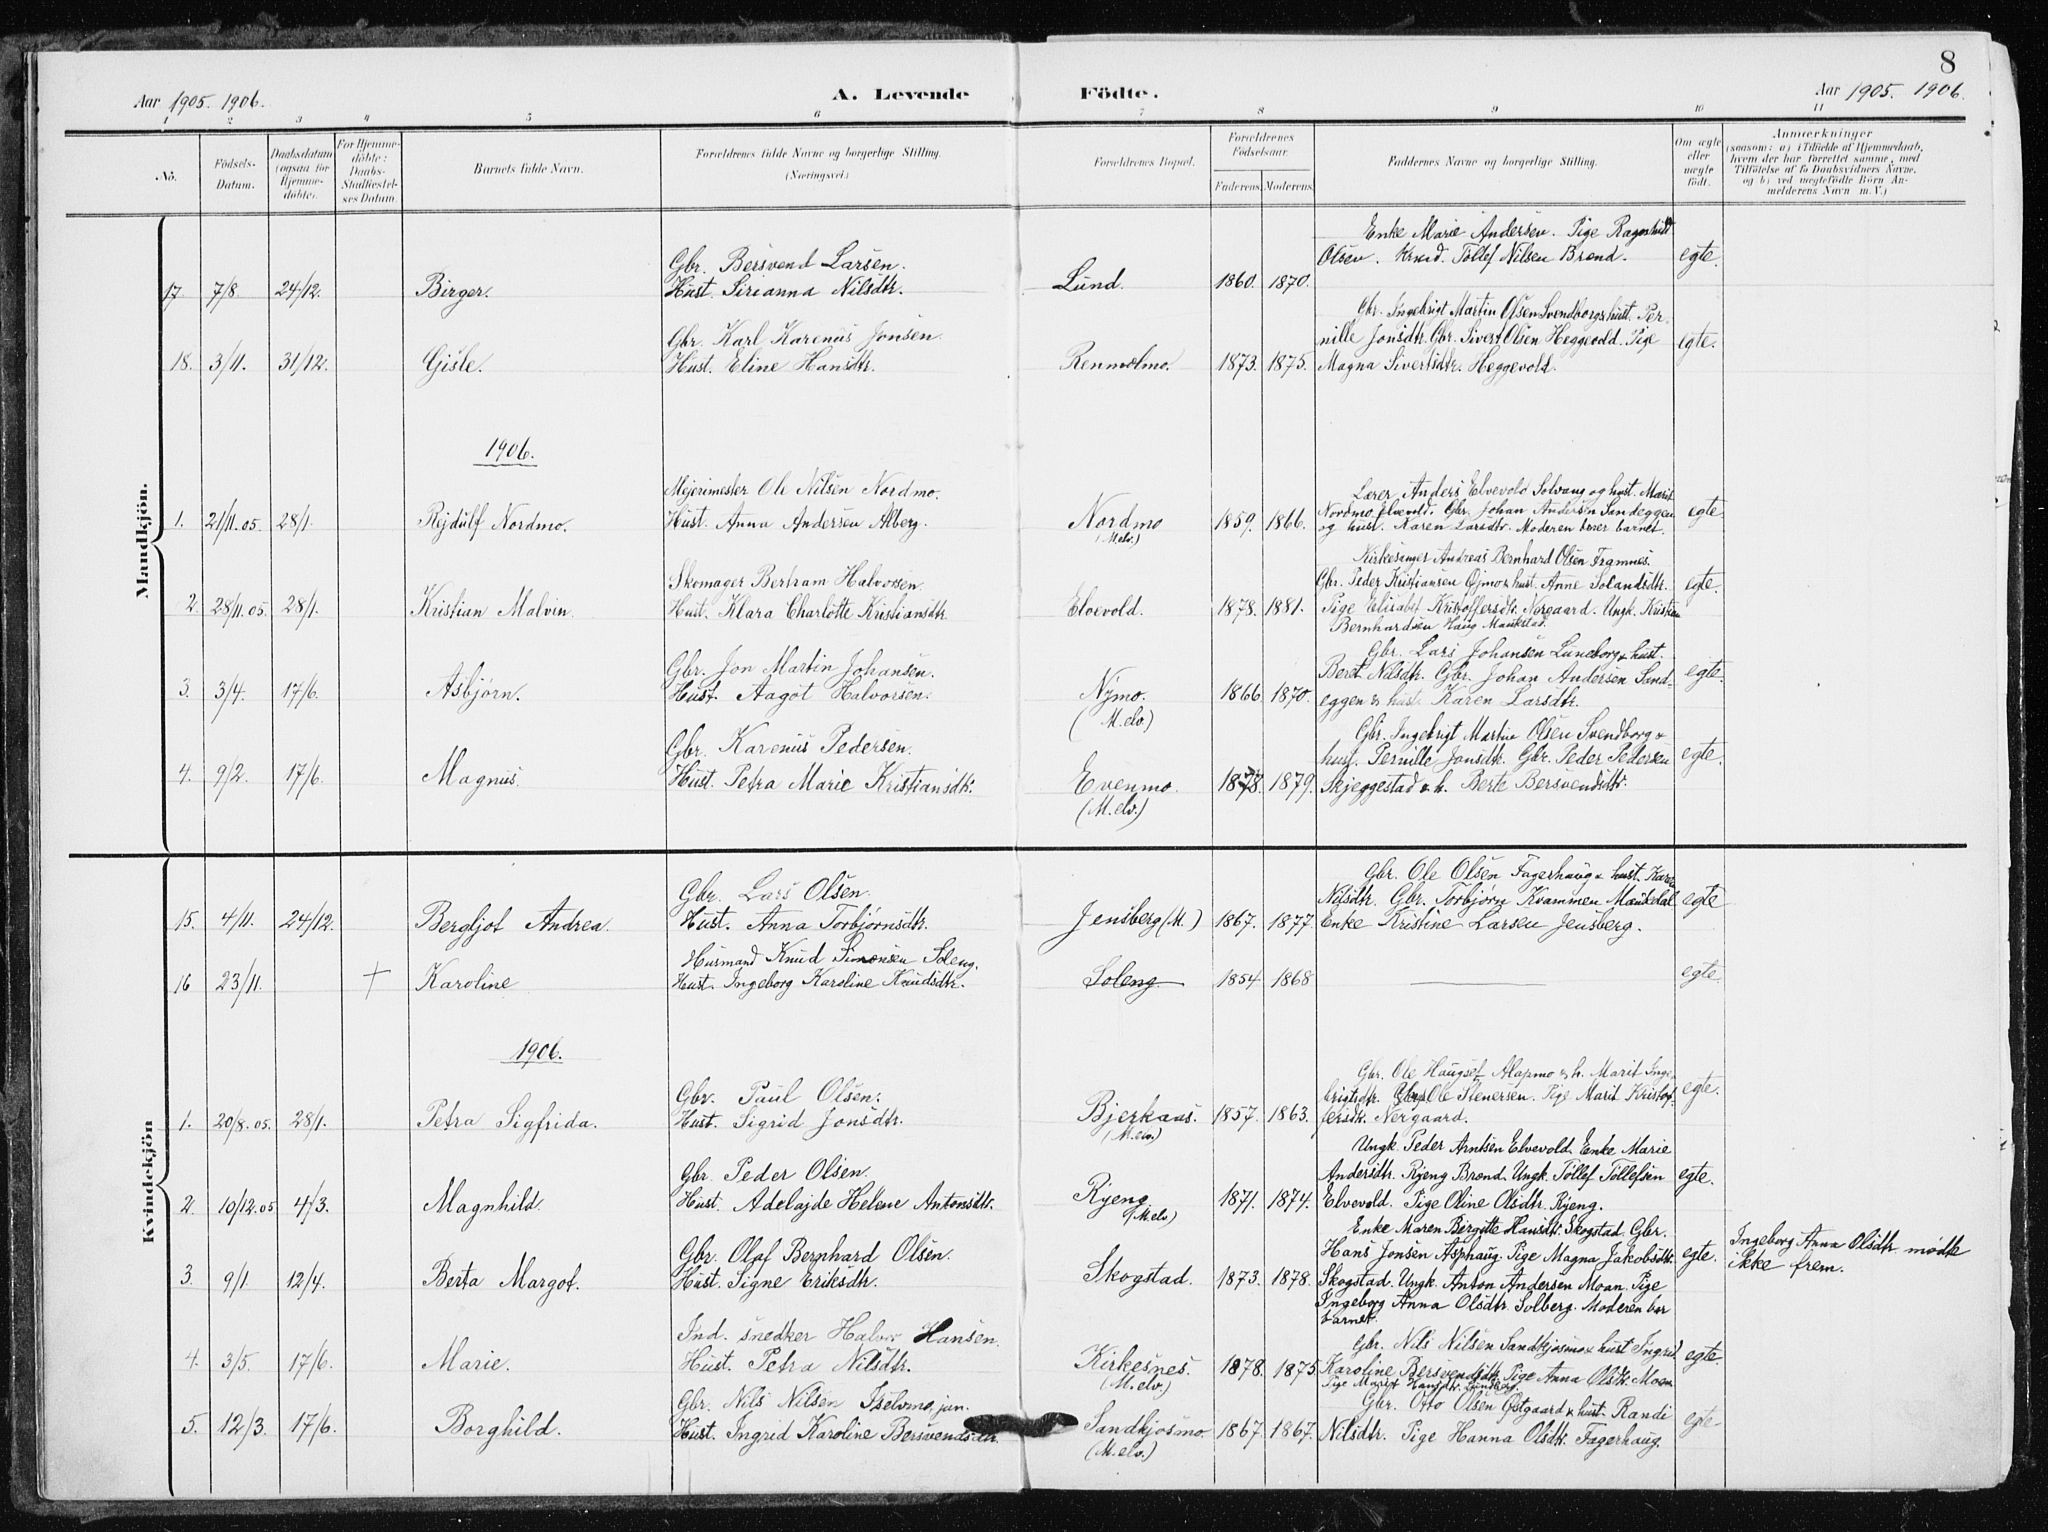 8
Aar 1905. 1906.
A. Levende Födte.
Aar 1905. 1906.
1 2 3 4 5 6 7 8 9 10 11
No.
Födsels-Datum.
Daabsdatum (ogsaa for Hjemme-döbte).
For Hjemme-döbte: Daabs-Stadfæstel-ses Datum.
Barnets fulde Navn.
Forældrenes fulde Navne og borgerlige Stilling.
(Næringsvei)
Forældrenes Bopæl.
Forældrenes Födselsaar.
Faderens. Moderens.
Faddernes Navne og borgerlige Stilling.
Om ægte eller uægte født.
Anmærkninger
(saasom: a) i Tilfælde af Hjemmedaab,
hvem der har forrettet samme, med
Tilföielse af to Daabsvidners Navne,
og b) ved uægtefödte Börn An-
melderens Navn m. V.)
Mandkjön.
Enke Marie Andersen. Pige Ragnhild
Gbr. Bersvend Larsen. Olsen. Krud. Tollef Nilsen Brend. egte.
17. 7/8. 24/12. Birger. Hust. Sirianna Nilsdtr. Lund. 1860. 1870.
Gbr. Ingebrigt Martin Olsen Svendborg & hust. Per-
Gbr. Karl Karenus Jonsen. nille Jonsdtr. Gbr. Sivert Olsen Heggevold. Pige egte.
18. 3/11. 31/12. Gisle. Hust. Eline Hansdtr. Renmælmo. 1873. 1875. Magna Sivertsdtr. Heggevold.
1906.
Lærer Anders Elvevold Solvang og hust. Marit
Mejerimester Ole Nilsen Nordmo. Nordmo Elvevold. Gbr. Johan Andersen Sandeggen egte
1. 21/11.05. 28/1. Rejdulf Nordmo. Hust. Anna Andersen Alberg. Nordmo 1859. 1866. og hust. Karen Larsdtr. Moderen bærer barnet.
(M.elv.)
Kirkesanger Andreas Bernhard Olsen Framnes.
Skomager Bertram Halvorsen Gbr. Peder Kristiansen Øjmo & hust. Anne Solandsdtr. egte.
2. 28/11.05. 28/1. Kristian Malvin. Hust. Klara Charlotte Kristiansdtr. Elvevold. 1878. 1881. Pige Elisabet Kristoffersdtr. Nergaard. Ungk. Kristian
Bernhardsen Haug Maukstad.
Gbr. Lars Johansen Luneborg & hust.
Gbr. Jon Martin Johansen. Beret Nilsdtr. Gbr. Johan Andersen Sand- egte.
3. 3/4. 17/6. Asbjørn. Hust. Aagot Halvorsen. Nymo. 1866. 1870. eggen & hust. Karen Larsdtr.
(M.elv.)
Gbr. Ingebrigt Martin Olsen Svendborg &
Gbr. Karenus Pedersen. hust. Pernille Jonsdtr. Gbr. Peder Pedersen egte.
4. 9/2. 17/6. Magnus. Hust. Petra Marie Kristiansdtr. Evenmo. 1878. 1879. Skjeggestad & h. Berte Bersvendsdtr.
(M.elv.)
Kvindekjön
Gbr. Ole Olsen Fagerhaug & hust. Karen
Gbr. Lars Olsen. Nilsdtr. Gbr. Torbjørn Kvammen Maukdal egte
15. 4/11. 24/12. Bergljot Andrea. Hust. Anna Torbjørnsdtr. Jensberg (M.) 1867. 1877. Enke Kristine Larsen Jensberg.
Husmand Knud Simonsen Soleng.
16 23/11. + Karoline Hust. Ingeborg Karoline Knudsdtr. Soleng 1854. 1868 egte.
1906.
Gbr. Ole Haugset Alapmo & h. Marit Inge-
Gbr. Paul Olsen. brigtsdtr. Gbr. Ole Stenersen. Pige Marit Kristof- egte.
1. 20/8.05. 28/1. Petra Sigfrida. Hust. Sigrid Jonsdtr. Bjerkaas. 1857. 1863. fersdtr. Nergaard.
(M.elv.)
Ungk. Peder Arntsen Elvevold. Enke Marie
Gbr. Peder Olsen. Andersdtr. Ryeng Brend. Ungk. Tollef Tollefsen egte.
2. 10/12.05 4/3. Magnhild. Hust. Adelajde Helene Antonsdtr. Ryeng 1871. 1874. Elvevold. Pige Oline Olsdtr. Ryeng.
(M.elv)
Enke Maren Birgitte Hansdtr. Skogstad. Gbr.
Gbr. Olaf Bernhard Olsen. Hans Jonsen Asphaug. Pige Magna Jakobsdtr. egte. Ingeborg Anna Olsdtr. mødte
3. 9/1. 12/4. Berta Margot. Hust. Signe Eriksdtr. Skogstad. 1873. 1878. Skogstad. Ungk. Anton Andersen Moan. Pige ikke frem.
Ingeborg Anna Olsdtr. Solberg. Moderen bar
barnet.
Ind. snedker Halvor Hansen. Gbr. Nils Nilsen Sandkjosmo & hust Ingrid
4. 3/5. 17/6. Marie. Hust. Petra Nilsdtr. Kirkesnes. 1878. 1875. Karoline Bersvendsdtr. Pige Anna Olsdtr. Moen egte.
(M.elv.) Pige Marit Hansdtr. Lundberg.
Gbr. Nils Nilsen Iselvmo, jun. Gbr. Otto Olsen Østgaard & hust. Randi
5. 12/3. 17/6. Borghild. Hust. Ingrid Karoline Bersvendsdtr. Sandkjosmo 1867. 1867. Nilsdtr. Pige Hanna Olsdtr. Fagerhaug. egte
(M.elv.)